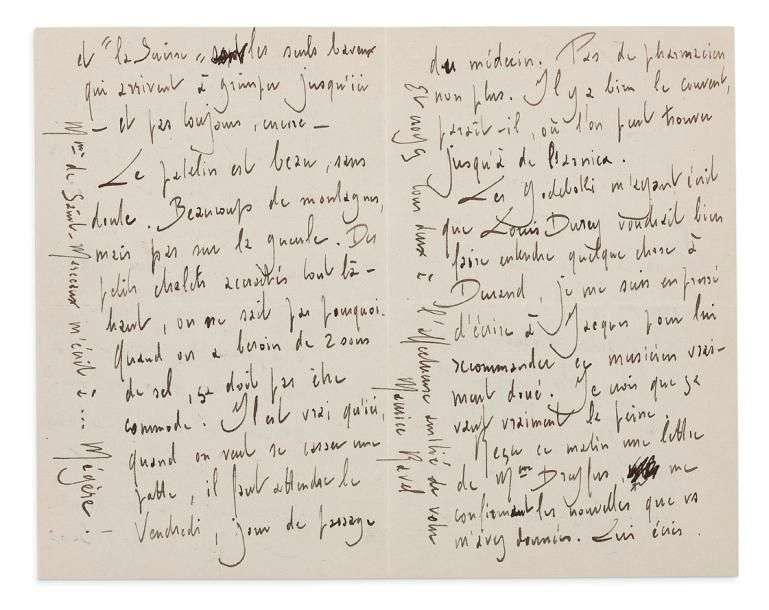 et "la Suisse" les seuls baveux
qui arrivent à grimper jusqu'ici
— et pas toujours, encore —
Le patelin est beau, sans
doute. Beaucoup de montagnes,
mais pas sur la gueule. Des
petits chalets accrochés tout là-
haut, on ne sait pas pourquoi.
Quand on a besoin de 2 sous
de sel, ça doit pas être
commode. Il est vrai qu'ici,
quand on veut se casser une
patte, il faut attendre le
Vendredi, jour de passage
Mme de Saint-Marceaux m'écrit à... Mégève!
du médecin. Pas de pharmacien
non plus. Il y a bien le couvent,
paraît-il, où l'on peut trouver
jusqu'à de l'arnica.
Les Godebski m'ayant écrit
que Louis Durey voudrait bien
faire entendre quelque chose à
Durand, je me suis empressé
d'écrire à Jacques pour lui
recommander ce musicien vrai-
ment doué. Je crois que ça
vaut vraiment la peine.
Reçu ce matin une lettre
de Mme Dreyfus, me
confirmant les nouvelles que vs
m'avez données. Lui écris.
Et croyez tous deux à l'affectueuse amitié de votre
Maurice Ravel